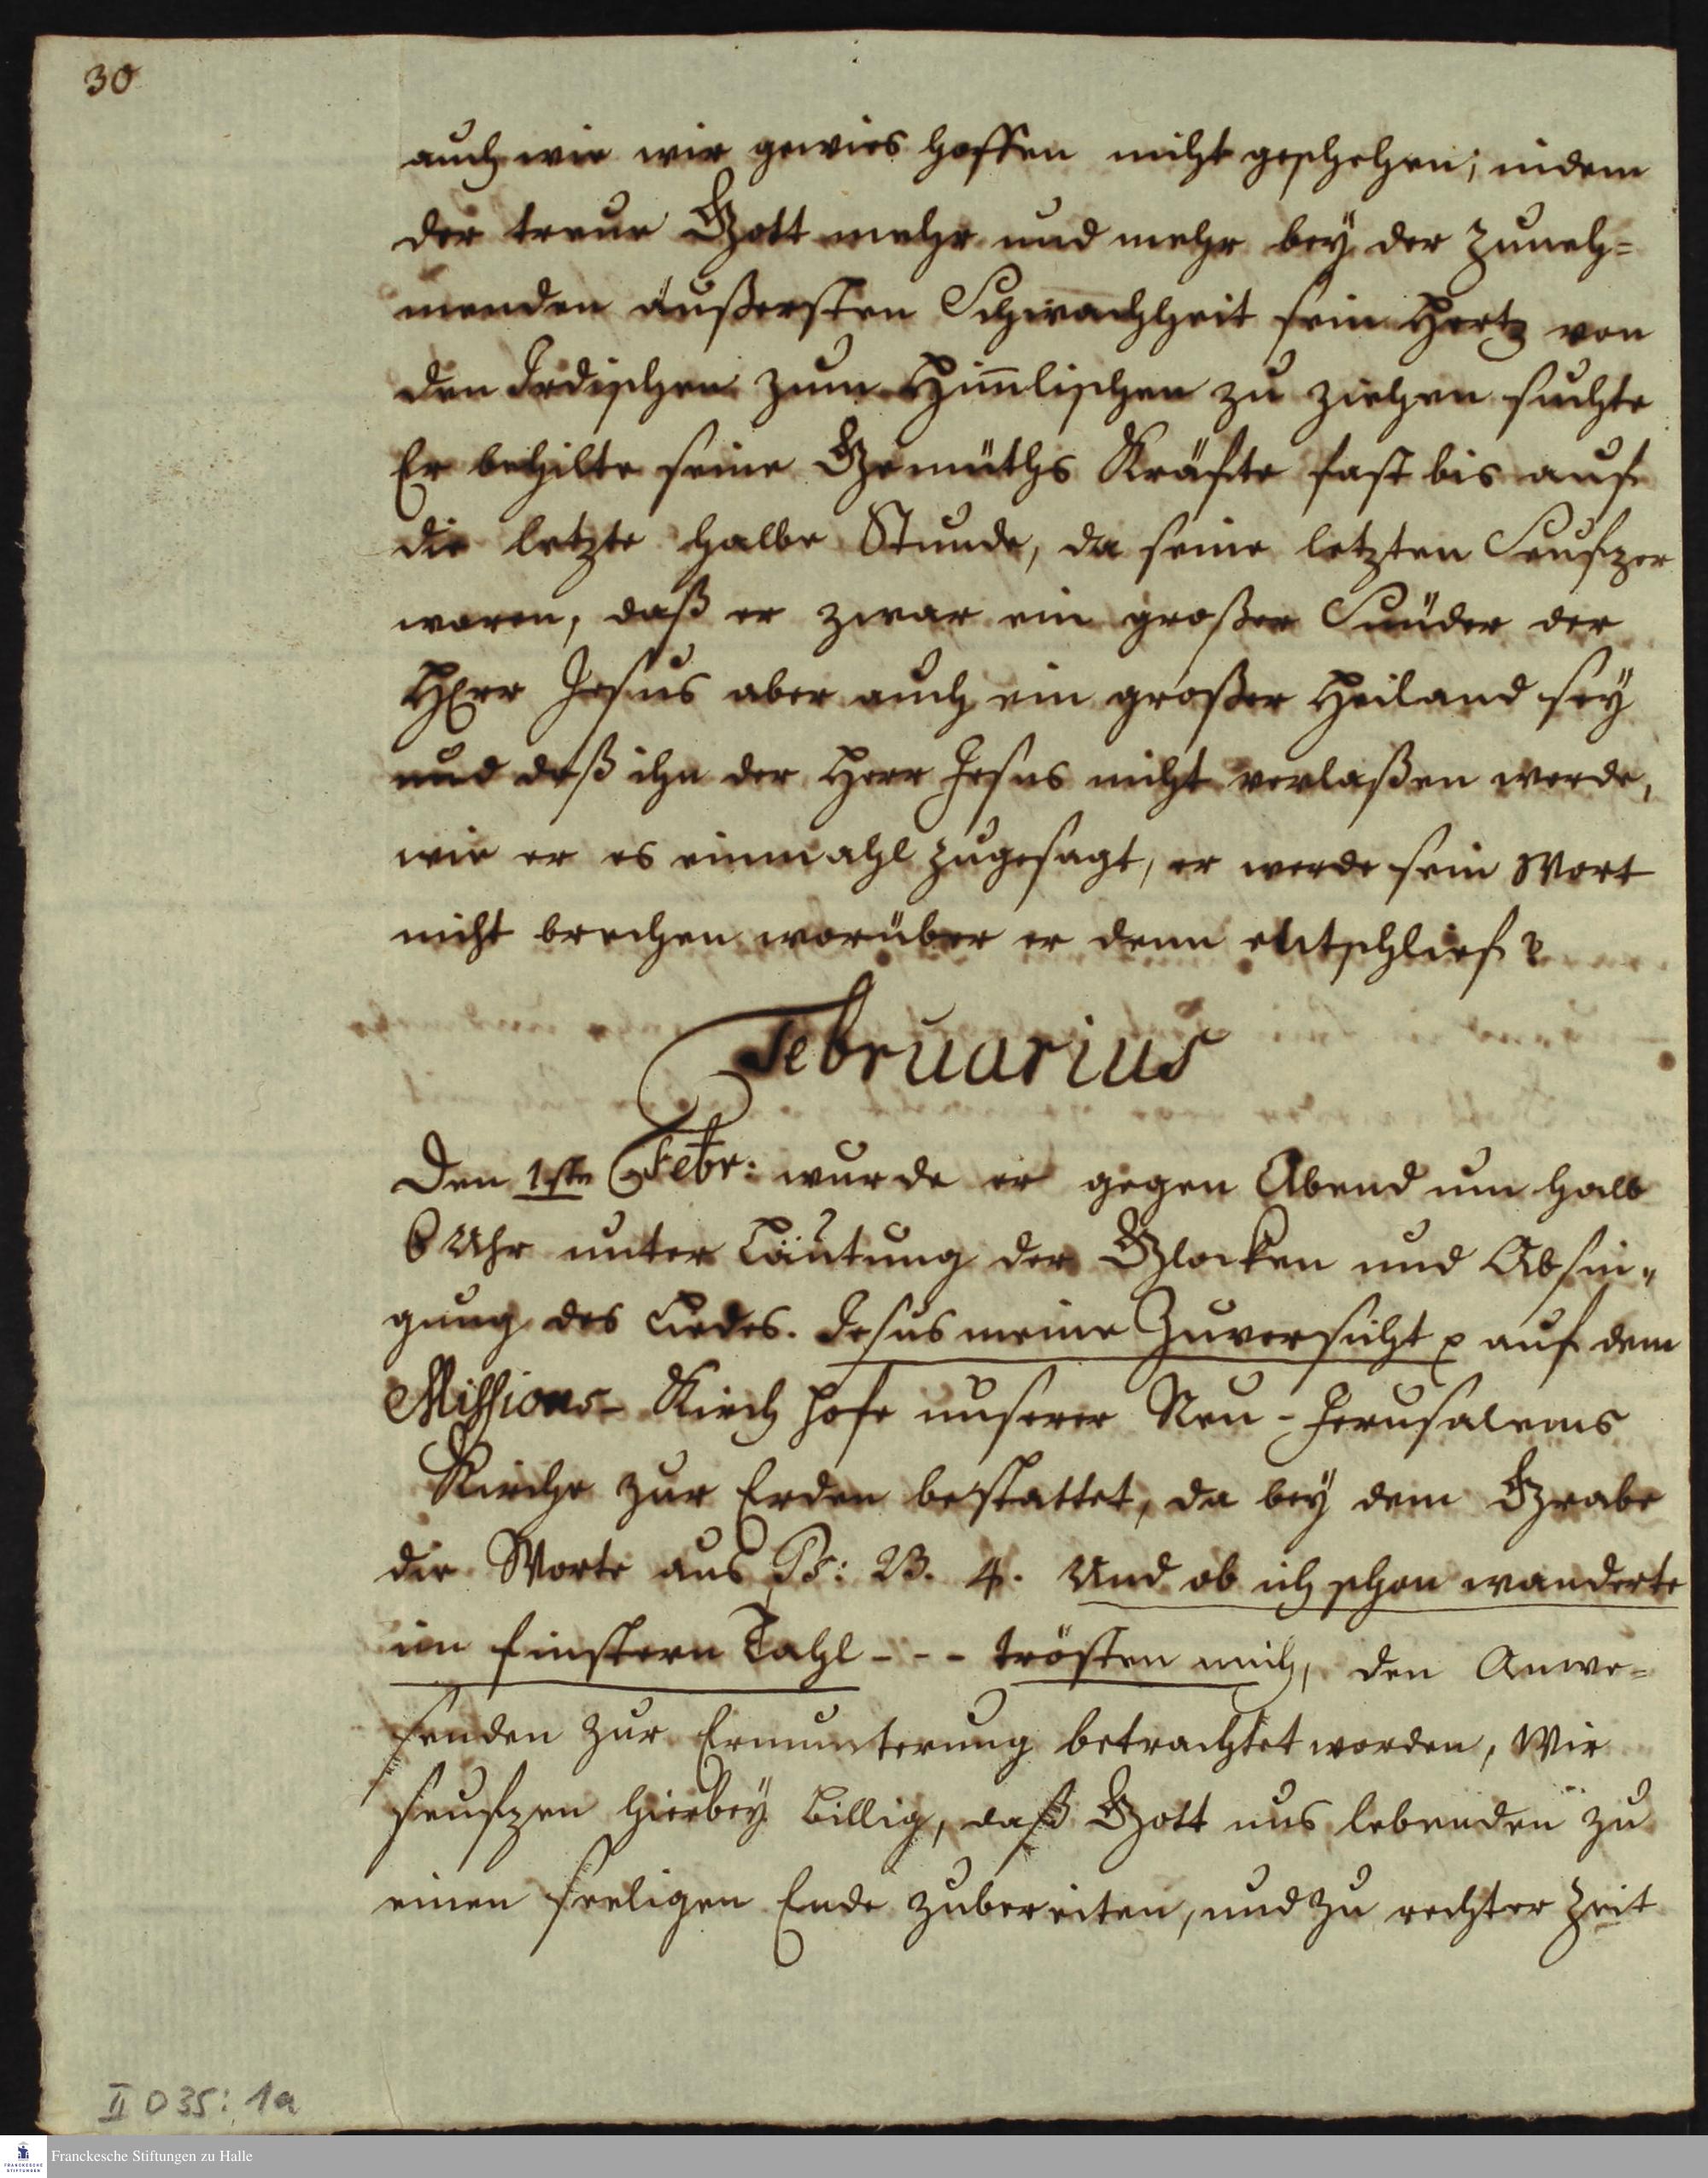 30
auch wie wir gewies hoffen nicht geschehen; indem
der treue Gott mehr und mehr beÿ der zuneh=
menden äußersten Schwachheit sein Hertz von
den Irdischen zum Himlischen zu ziehen suchte
Er behilte seine Gemüths Kräfte fast bis auf
die letzte halbe Stunde, da seine letzten Seufzer
waren, daß er zwar ein großer Sünder der
HErr Jesus aber auch ein großer Heiland seÿ
und daß ihn der Herr Jesus nicht verlaßen werde,
wie er es einmahl zugesagt, er werde sein Wort
nicht brechen worüber er denn entschlief
Februarius
Den 1ste Febr: wurde er gegen Abend um halb
6 Uhr unter Läutung der Glocken und Absin=
gung des Liedes. Jesus meine Zuversicht auf dem
Missions- Kirch hofe unserer Neu-Jerusalems
Kirche zur Erden bestattet, da beÿ dem Grabe
die Worte aus Ps: 23. 4. Und ob ich schon wanderte
im finstern Tahl - - - trösten mich, den Anwe=
senden zur Ermunterung betrachtet worden, Wir
seufzen hierbeÿ billig, daß Gott uns lebenden zu
einen seeligen Ende zubereiten, und zu rechter Zeit
II D 35: 1a
Franckesche Stiftungen zu Halle
FRANCKESCHE
STIFTUNGEN